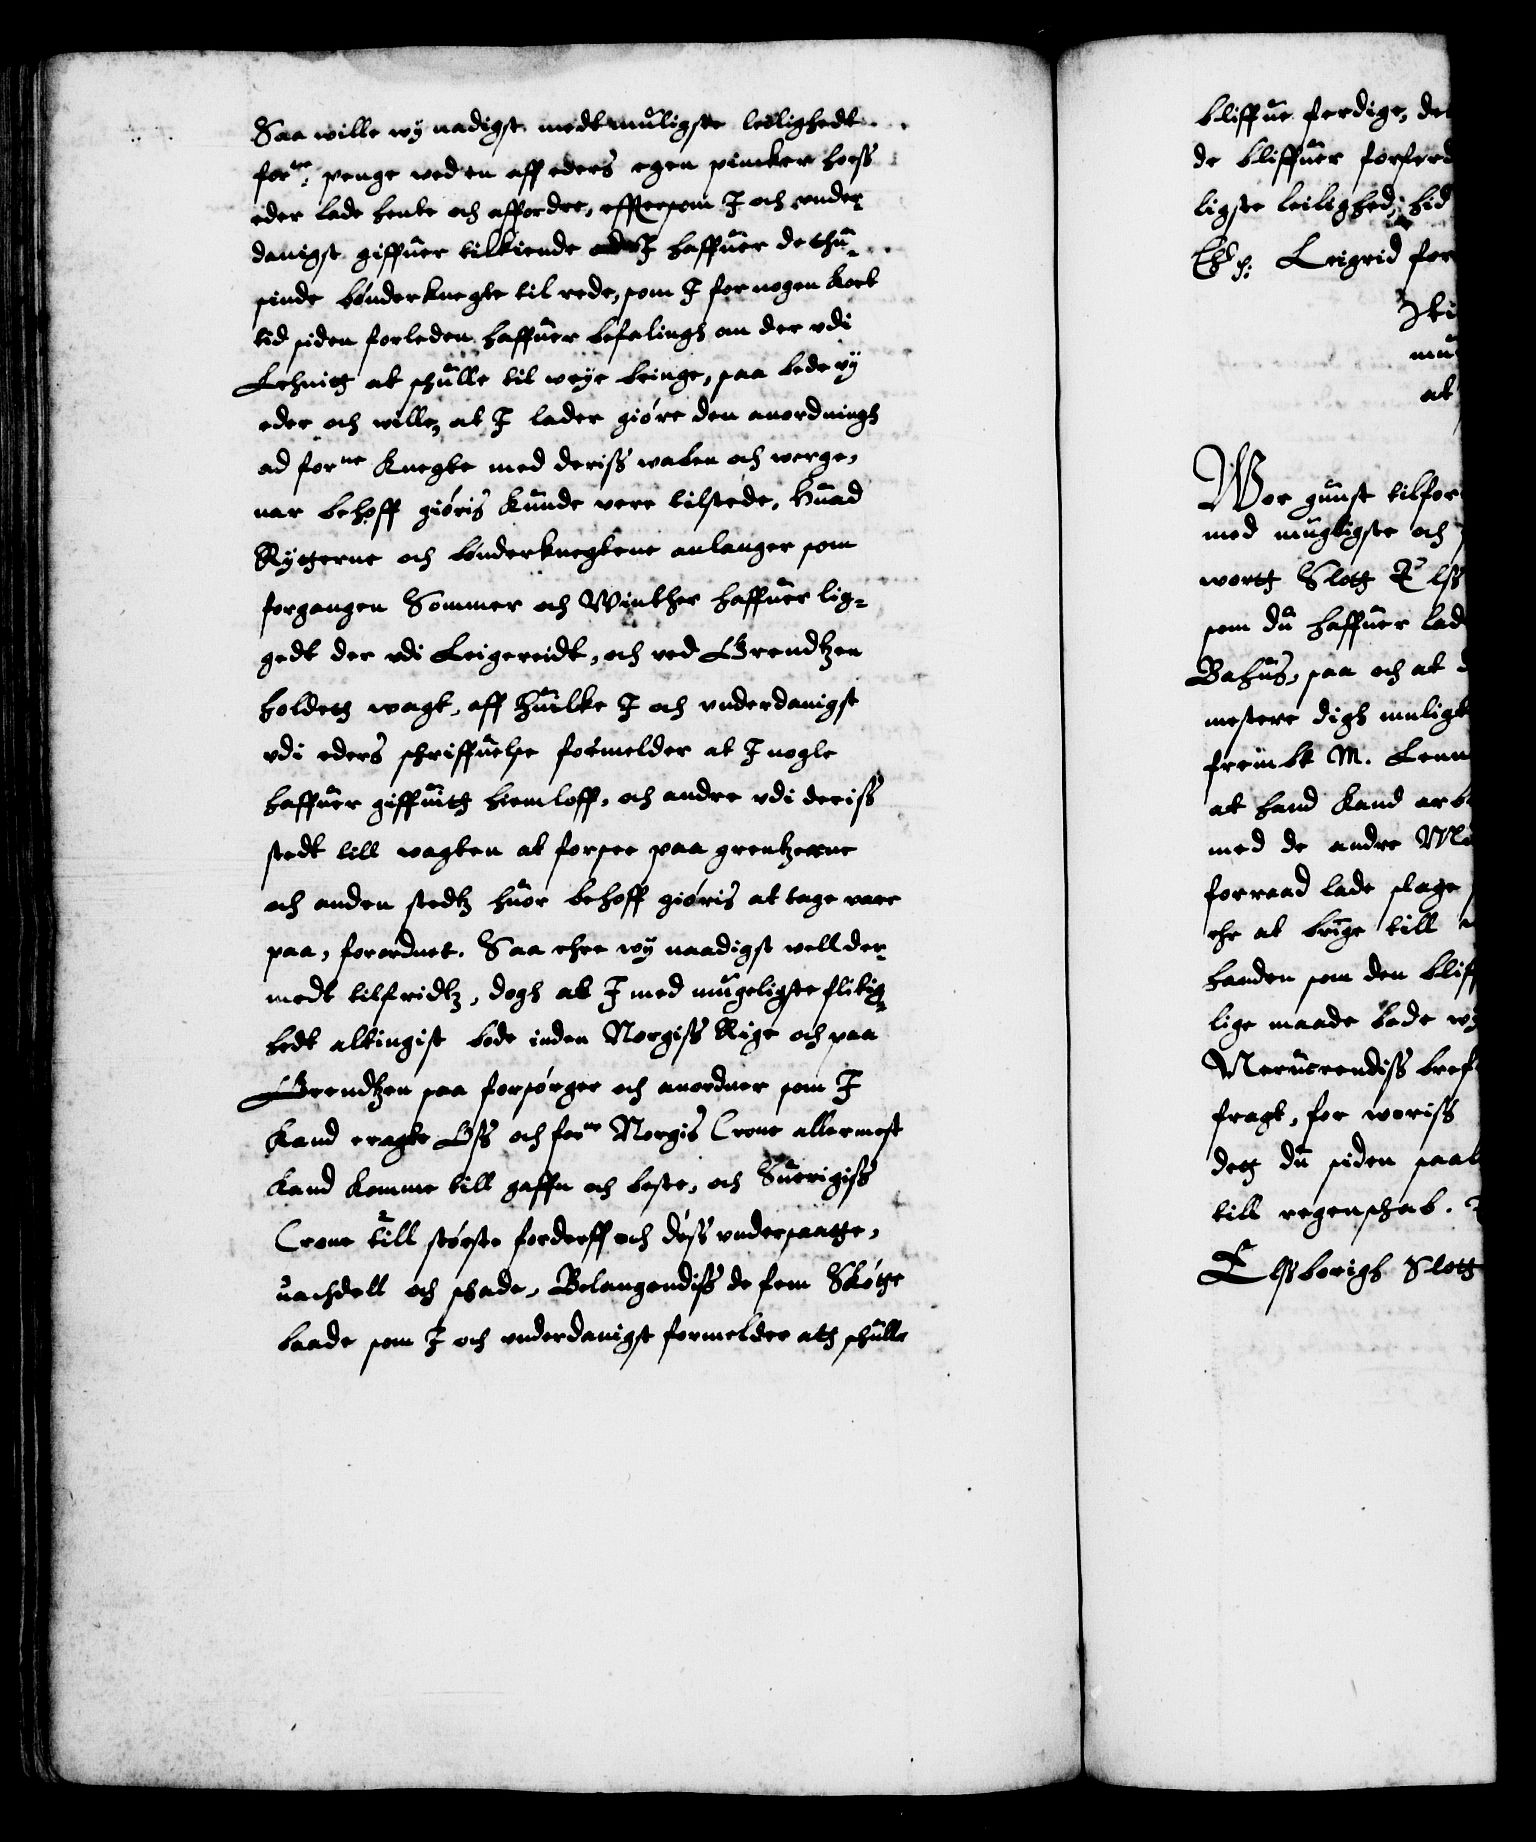 Saa wille wy nadigst medt muligste leilighedt
for.ne penge ved en aff eders egen pincker hoess
eder lade hente och affordre, effttersom I och under¬
danigst giffuer tilkiende I haffuer de thu¬
sinde bønder knegte til rede, som I for nogen kort
tid siden forleden haffuer befalingh an der udi
Lehnitt at schulle til weye bringe, saa bede wy
eder och wille, at I lader giøre den anordningh
ad forne knegte med deriss waben och werge,
nar behoff giøris kunde vere tilstede, huad
Rytterne och bønderknegtene anlanger som
forgangen Sommer och Winther haffuer lig¬
gedt der udi Leigereidt, och ved Grendtzen
holdett wagt, aff huilke I och underdanigst
udi eders schriffuelse formelder at I nogle
haffuer giffuitt hiemloff, och andre udi deriss
stedt till wagten at forsee paa grentzerne
och anden stedtz huor behoff giøris at tage vare
paa, forordnet. Saa ehre wy naadigst vell der¬
medt tilfridtz, dogh at I med mugeligste flitig¬
hedt altingist bode inden Norgiss Rige och paa
Grendtzen saa forsørger och anordner som I
kand eragte Oss och forne Norgis Crone allermest
kand komme till gaffn och beste, och Suerigiss
Crone till største forderff och dess undersaatte,
nachdell och schade, Belangendiss de fem Skøtte
baade som I och underdanigst formelder att schulle
bliffue ferdige, det
de bliffuer forferd
ligste leilighed, hid
Leigrid for
mu
at
Wor gunst tilfor
med mugligste och
wortt Slott Elss
som du haffuer lad
Bahus, saa och at d
mestere digh muligt
at hand kand arb
med de andre
forraad lade slage
ehr at bringe till
handen som den bliff
lige maade bede wy
fragt, for woriss
dett du siden saal
till regenschab.
Elssborigh Slott